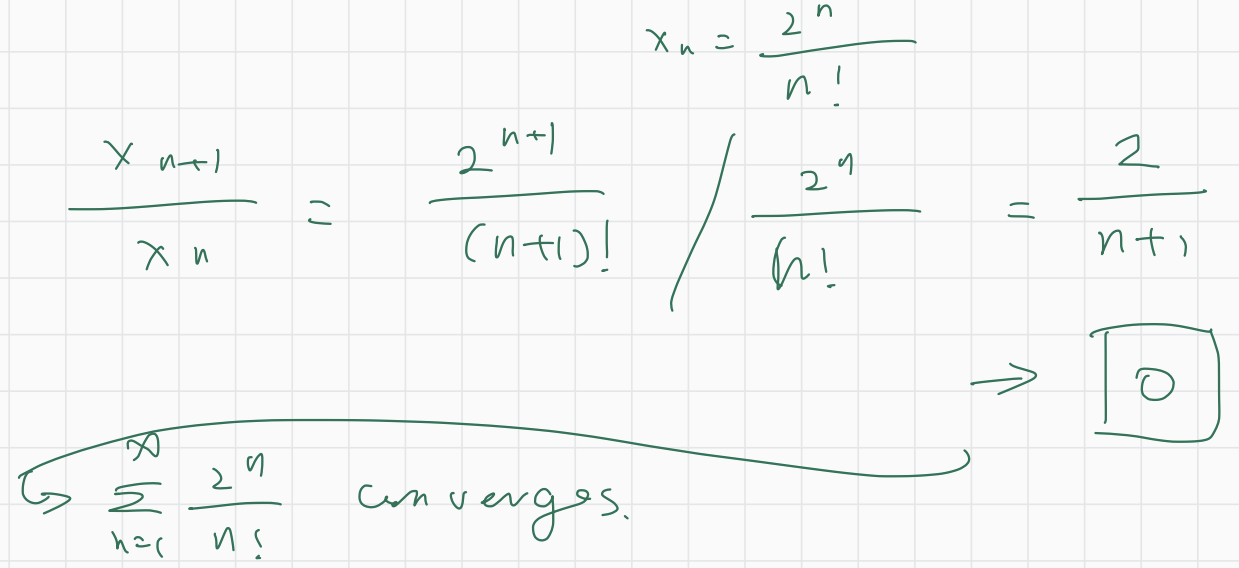 x_n = 2^n / n!
x_{n+1} / x_n = 2^{n+1} / (n+1)! / 2^n / n! = 2 / n+1
→ 0
↪ ∑_{n=1}^∞ 2^n / n! converges.